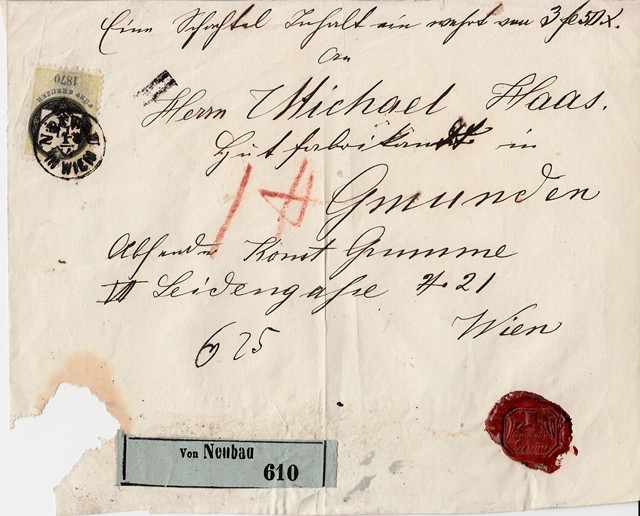 Eine Schachtel Inhalt ein wehrt von 3 f 50 x.
An
Herrn Michael Haas.
Hutfabrikant in
Gmunden
Absender Konst Grumme
VII Seidengasse № 21
Wien
6 25
1870
FÜNF KREUZER
IN WIEN
Von Neubau
610